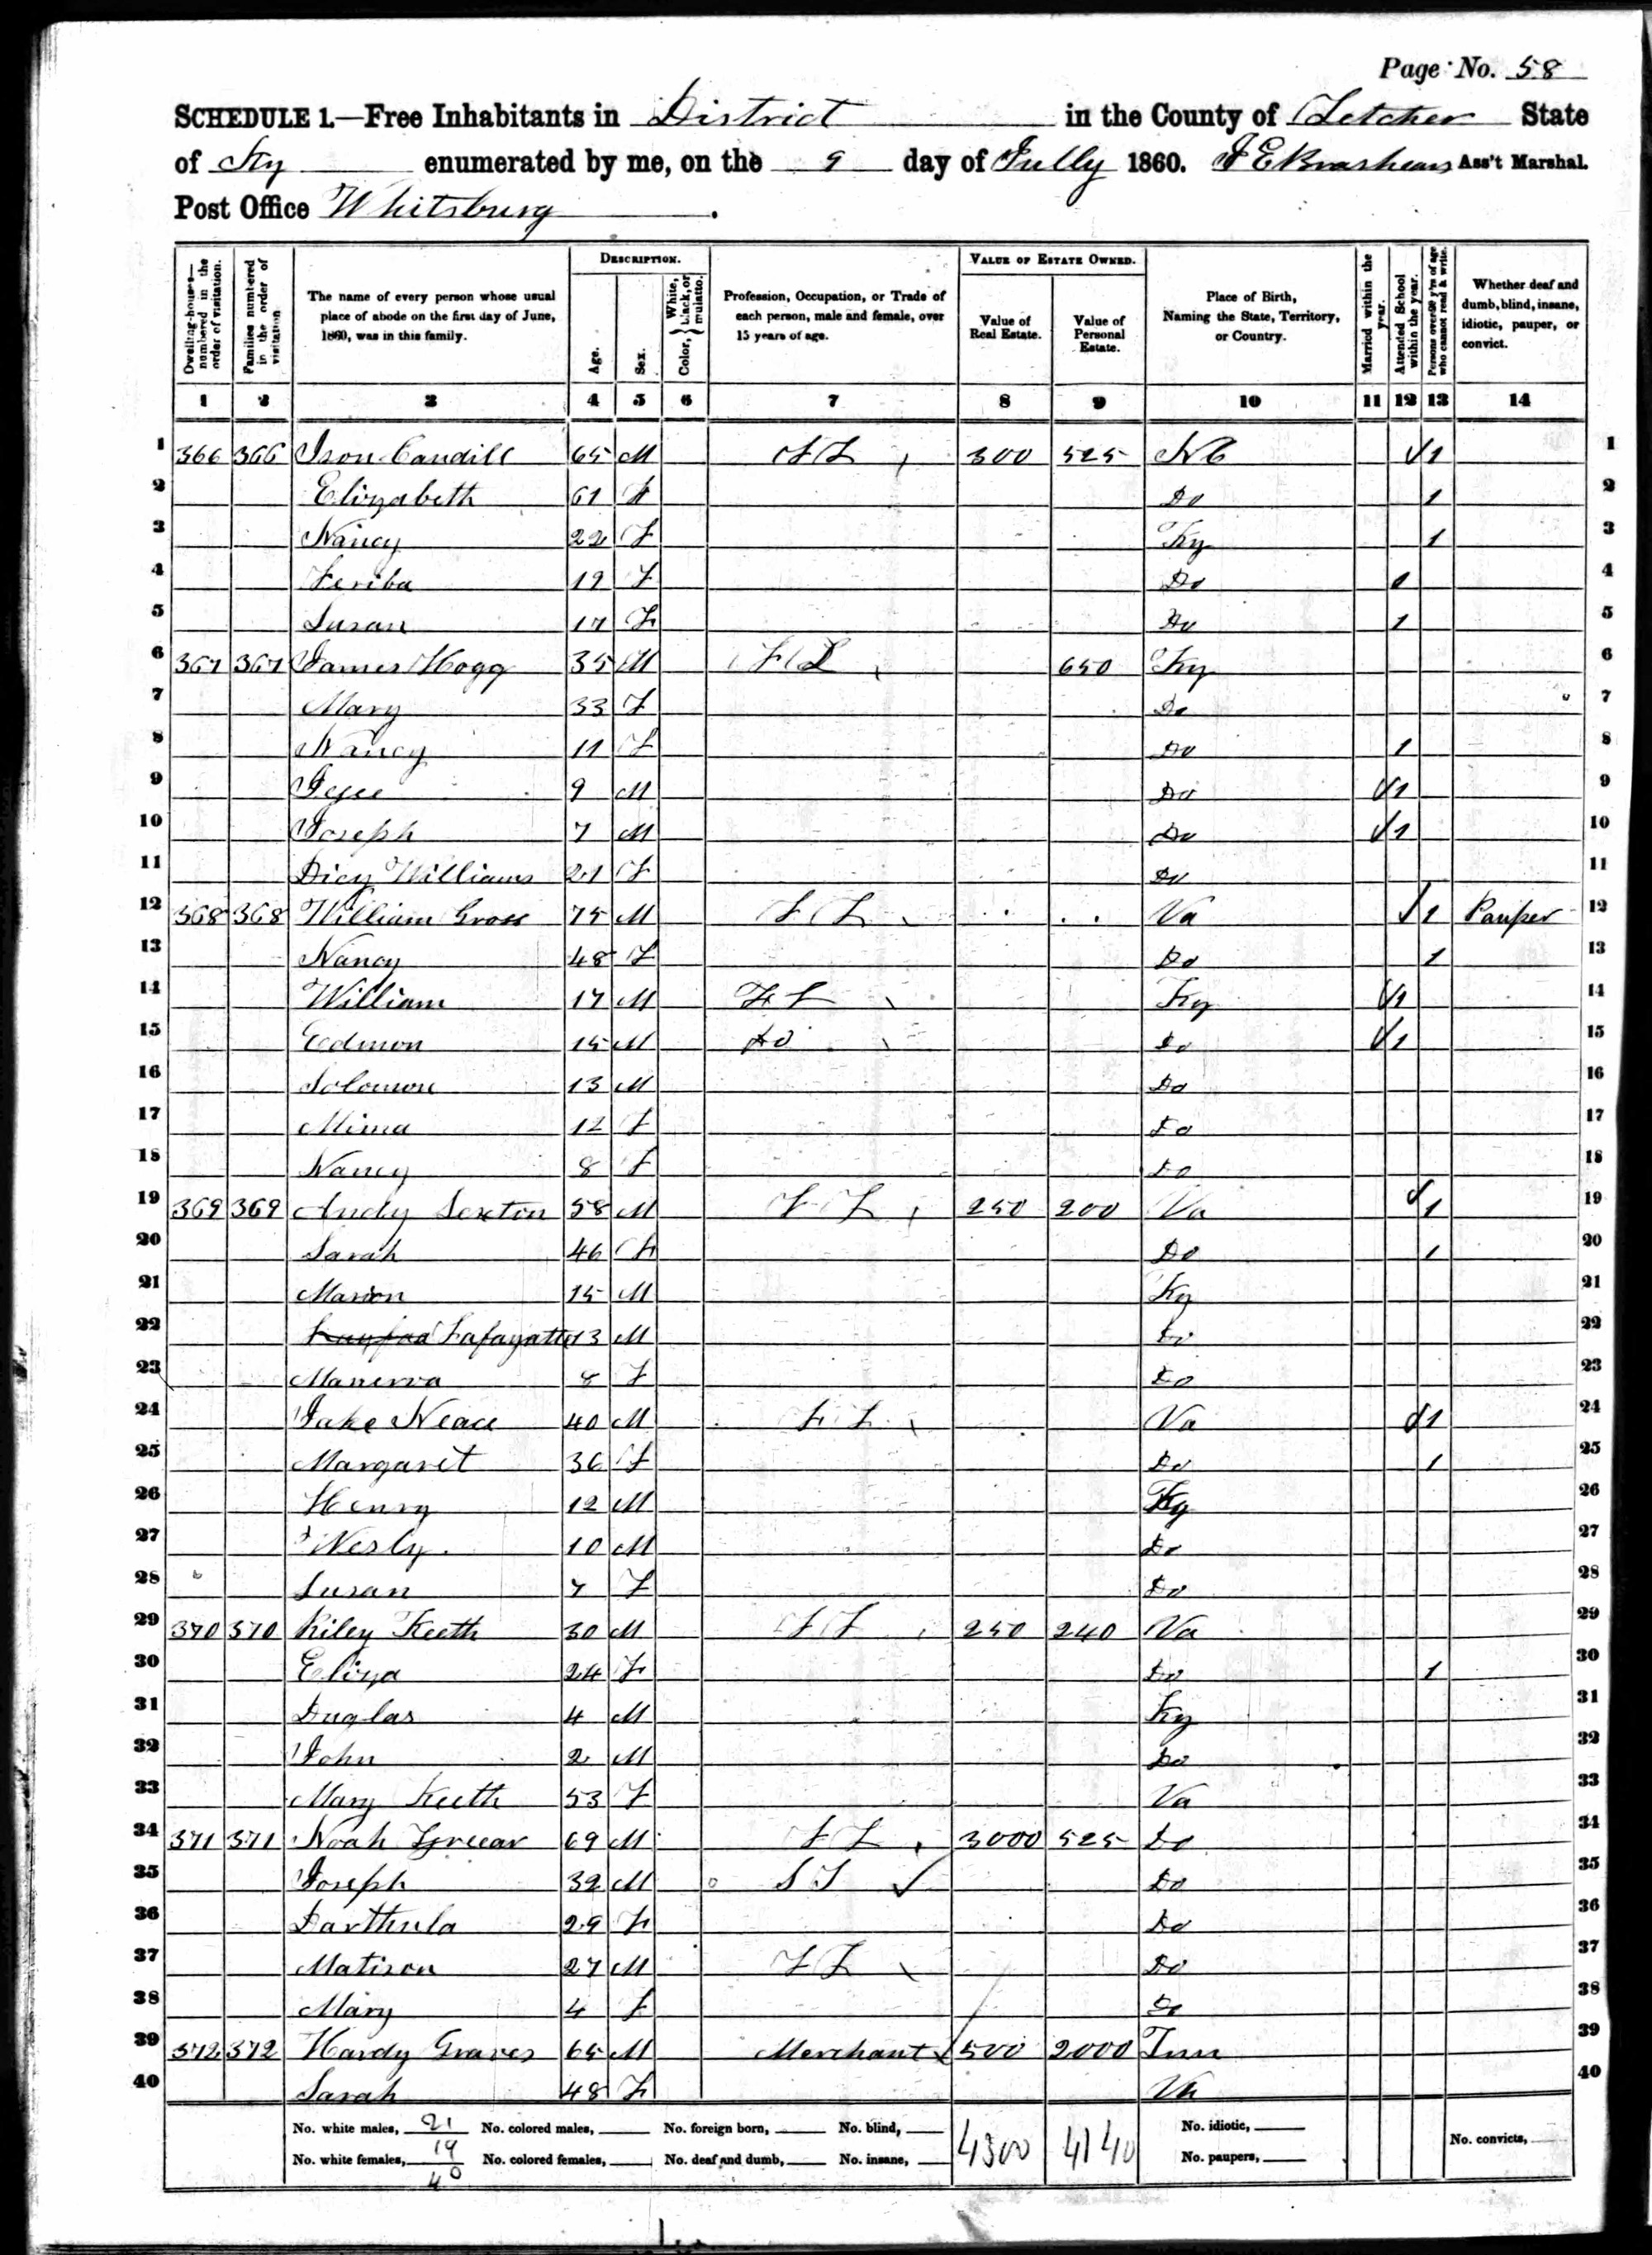 Page No. 58
SCHEDULE 1.—Free Inhabitants in District in the County of Letcher State
of Ky enumerated by me, on the 9 day of Jully 1860. Ass't Marshal.
Post Office Whitsburg.
Dwelling-houses—numbered in the order of visitation.
Families numbered in the order of visitation
The name of every person whose usual place of abode on the first day of June, 1860, was in this family.
DESCRIPTION.
Age.
Sex.
Color, White, black, or mulatto.
Profession, Occupation, or Trade of each person, male and female, over 15 years of age.
VALUE OF ESTATE OWNED.
Value of Real Estate.
Value of Personal Estate.
Place of Birth, Naming the State, Territory, or Country.
Married within the year.
Attended School within the year.
Persons over 20 y'rs of age who cannot read & write.
Whether deaf and dumb, blind, insane, idiotic, pauper, or convict.
1 2 3 4 5 6 7 8 9 10 11 12 13 14
1 366 366 Ison Caudill 65 M F L 300 525 NC 1 1
2 Elizabeth 61 F Do 1 2
3 Nancy 22 F Ky 1 3
4 19 F Do 4
5 Susan 17 F Do 1 5
6 367 367 James Hogg 35 M F L 650 Ky 6
7 Mary 33 F Do 7
8 Nancy 11 F Do 1 8
9 9 M Do 1 9
10 Joseph 7 M Do 1 10
11 Dicy Williams 21 F Do 11
12 368 368 William Gross 75 M F L Va 1 Pauper 12
13 Nancy 48 F Do 1 13
14 William 17 M F L Ky 1 14
15 Edmon 15 M Do Do 1 15
16 Solomon 13 M Do 16
17 Mima 12 F Do 17
18 Nancy 8 F Do 18
19 369 369 Andy Sexton 58 M F L 250 200 Va 1 19
20 Sarah 46 F Do 1 20
21 Marion 15 M Ky 21
22 Lafayatte 13 M Do 22
23 Manerva 8 F Do 23
24 Jake Neace 40 M F L Va 1 24
25 Margaret 36 F Do 1 25
26 Henry 12 M Ky 26
27 Wesly 10 M Do 27
28 Susan 7 F Do 28
29 370 370 Riley Keeth 30 M F L 250 240 Va 29
30 Eliza 24 F Do 1 30
31 Duglas 4 M Ky 31
32 John 2 M Do 32
33 Mary Keeth 53 F Va 33
34 371 371 Noah 69 M F L 3000 525 Do 34
35 Joseph 32 M S T Do 35
36 Darthula 29 F Do 36
37 Matison 27 M F L Do 37
38 Mary 4 F Do 38
39 372 372 Hardy Graves 65 M Merchant 500 2000 Tnn 39
40 Sarah 48 F Va 40
No. white males, 21 No. colored males, No. foreign born, No. blind, 4300 4140 No. idiotic,
No. white females, 19 No. colored females, No. deaf and dumb, No. insane, No. paupers, No. convicts,
40